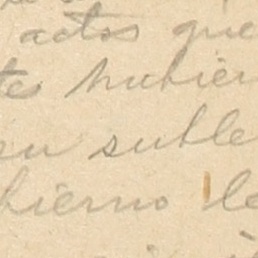 actos que
tes hubier
su suble
bierno le